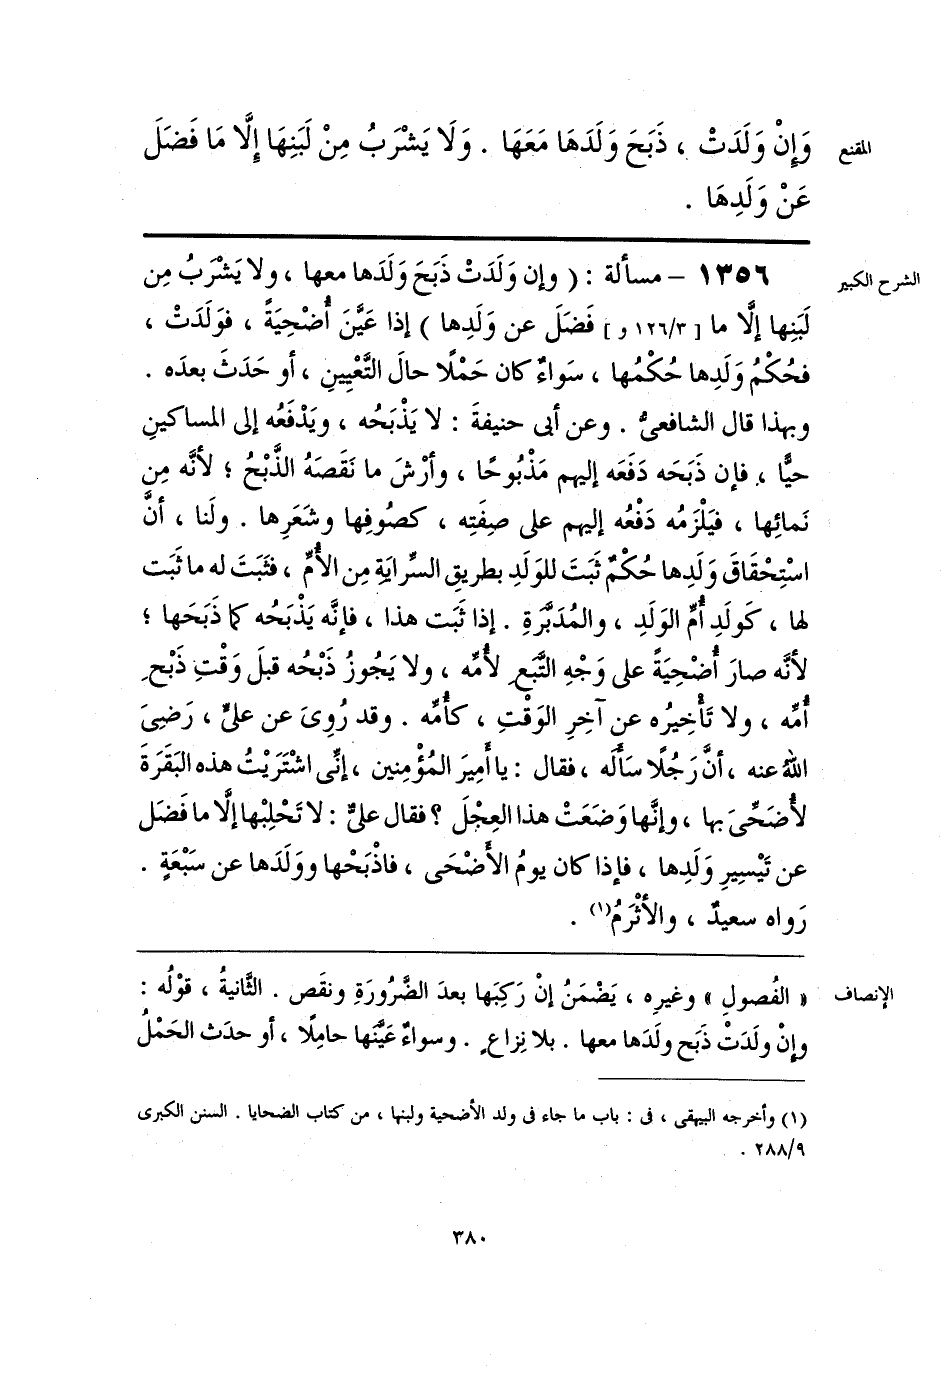 المقنع
وَإِنْ وَلَدَتْ ، ذَبَحَ وَلَدَهَا مَعَهَا . وَلَا يَشْرَبُ مِنْ لَبَنِهَا إِلَّا مَا فَضَلَ
عَنْ وَلَدِهَا .
الشرح الكبير
١٣٥٦ – مسألة : ( وإن وَلَدَتْ ذَبَحَ وَلَدَها معها ، ولا يَشْرَبُ مِن
لَبَنِها إلَّا ما [ ١٢٦/٣ و ] فَضَلَ عن وَلَدِها ) إذا عَيَّنَ أُضْحِيَةً ، فوَلَدَتْ ،
فحُكْمُ وَلَدِها حُكْمُها ، سَواءٌ كان حَمْلًا حالَ التَّعْيِينِ ، أو حَدَثَ بعدَه .
وبهذا قال الشافعىُّ . وعن أبى حنيفةَ : لا يَذْبَحُه ، ويَدْفَعُه إلى المساكينِ
حيًّا ، فإن ذَبَحَه دَفَعَه إليهم مَذْبُوحًا ، وأرْشَ ما نَقَصَهُ الذَّبْحُ ؛ لأنَّه مِن
نَمائِها ، فيَلْزَمُه دَفْعُه إليهم على صِفَتِه ، كصُوفِها وشَعَرِها . ولَنا ، أنَّ
اسْتِحْقاقَ وَلَدِها حُكْمٌ ثَبَتَ للوَلَدِ بطريقِ السِّرايَةِ مِن الأُمِّ ، فثَبَتَ له ما ثَبَت
لها ، كَولَدِ أُمِّ الوَلَدِ ، والمُدَبَّرَةِ . إذا ثَبَت هذا ، فإنَّه يَذْبَحُه كما ذَبَحَها ؛
لأنَّه صارَ أُضْحِيَةً على وَجْهِ التَّبَعِ لأُمِّه ، ولا يَجُوزُ ذَبْحُه قبلَ وَقْتِ ذَبْحِ
أُمِّه ، ولا تَأْخِيرُه عن آخِرِ الوَقْتِ ، كأُمِّه . وقد رُوِىَ عن علىٍّ ، رَضِىَ
اللهُ عنه ، أنَّ رَجُلًا سَأَلَه ، فقال : يا أَمِيرَ المُؤْمِنين ، إنِّى اشْتَرَيْتُ هذه البَقَرَةَ
لأُضَحِّىَ بها ، وإنَّها وَضَعَتْ هذا العِجْلَ ؟ فقال علىٌّ : لا تَحْلِبْها إلَّا ما فَضَل
عن تَيْسِيرِ وَلَدِها ، فإذا كان يومُ الأَضْحَى ، فاذْبَحْها ووَلَدَها عن سَبْعَةٍ .
رَواه سعيدٌ ، والأثْرَمُ(١) .
الإنصاف
« الفُصولِ » وغيرِه ، يَضْمَنُ إنْ رَكِبَها بعدَ الضَّرُورَةِ ونقَص . الثَّانيةُ ، قوْلُه :
وإنْ ولَدَتْ ذَبَح ولَدَها معها . بلا نِزاعٍ . وسواءٌ عَيَّنَها حامِلًا ، أو حدَث الحَمْلُ
(١) وأخرجه البيهقى ، فى : باب ما جاء فى ولد الأضحية ولبنها ، من كتاب الضحايا . السنن الكبرى
٢٨٨/٩ .
٣٨٠